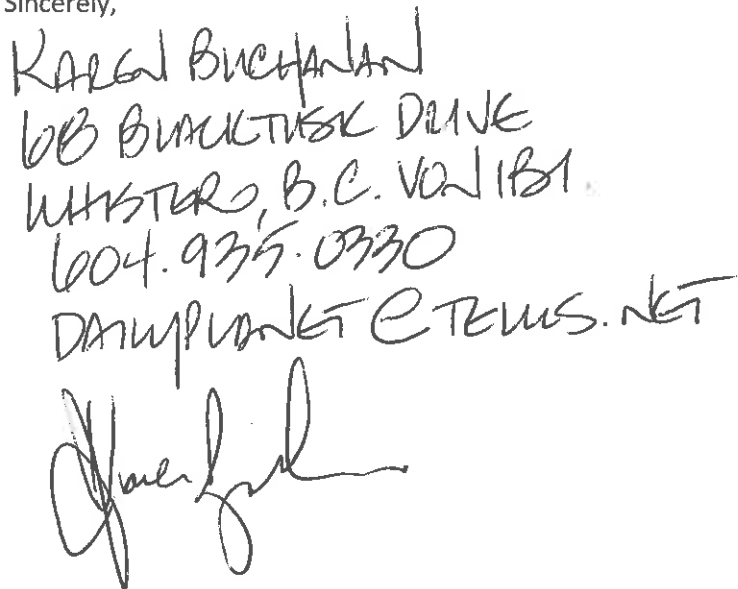 Sincerely,
KAREN BUCHANAN
BLACKTUSK DRIVE
WHISTLER, B.C. V0N 1B1
604.935.0330
DAILYPLANET@TELUS.NET